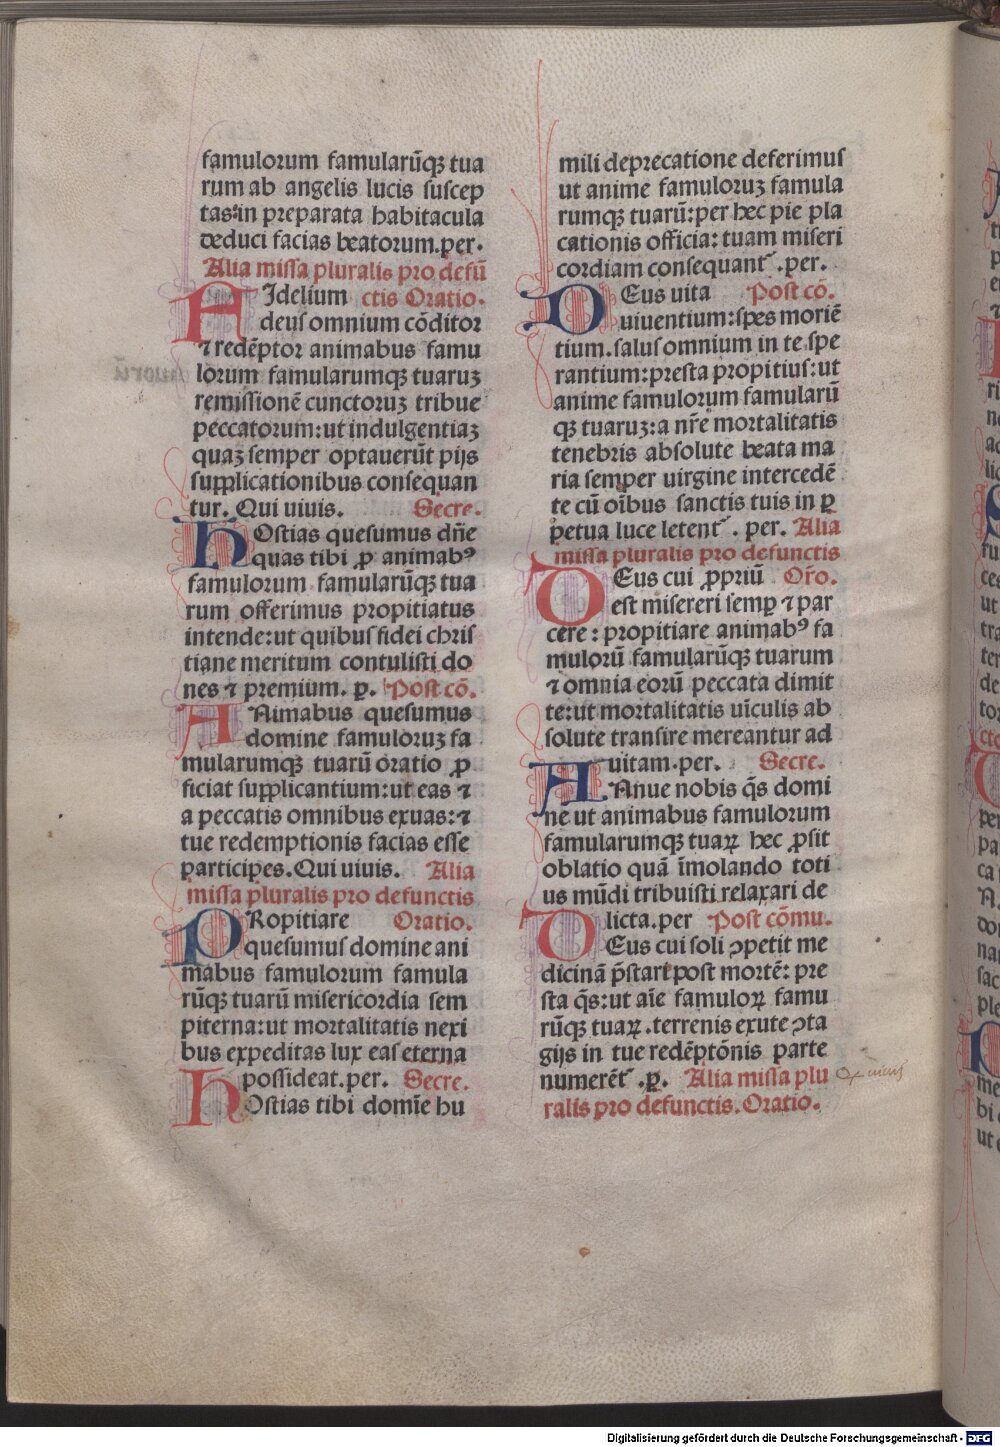 famulorum famularūqꝫ tua
rum ab angelis lucis ſuſcep
tas: in preparata habitacula
deduci facias beatorum.per.
Alia miſſa pluralis pro defū
FIdelium ctis Oratio.
deuſ omnium cōditor
⁊ redēptor animabus famu
lorum famularumqꝫ tuaruꝫ
remiſſionē cunctoruꝫ tribue
peccatorum:ut indulgentiaꝫ
quaꝫ ſemper optauerūt pijs
ſupplicationibus conſequan
tur. Qui uiuis. Secre.
HOſtias queſumus dn̄e
quas tibi ꝓ animabꝰ
famulorum famularūqꝫ tua
rum offerimus propitiatus
intende:ut quibuſ fidei chriſ
tiane meritum contuliſti do
nes ⁊ premium. ꝑ. Poſt cō.
ANimabus queſumus
domine famuloruꝫ fa
mularumqꝫ tuarū oratio ꝓ
ficiat ſupplicantium:ut eas ⁊
a peccatis omnibus exuas:⁊
tue redemptionis facias eſſe
participes.Qui uiuis. Alia
miſſa pluralis pro defunctis
PRopitiare Oratio.
queſumuſ domine ani
mabus famulorum famula
rūqꝫ tuarū miſericordia ſem
piterna:ut mortalitatis nexi
bus expeditas lux eaſ eterna
poſſideat.per. Secre.
HOſtias tibi domīe hu
mili deprecatione deferimuſ
ut anime famuloruꝫ famula
rumqꝫ tuarū:per hec pie pla
cationis officia: tuam miſeri
cordiam conſequant᷑ .per.
DEus uita Poſt cō.
uiuentium:ſpes moriē
tium.ſaluſ omnium in te ſpe
rantium:preſta propitiuſ:ut
anime famulorum famularū
qꝫ tuaruꝫ:a nr̄e mortalitatis
tenebris abſolute beata ma
ria ſemper uirgine intercedē
te cū oībus ſanctis tuis in ꝑ
petua luce letent᷑ . per. Alia
miſſa pluralis pro defunctis
DEus cui ꝓpriū Or̄o.
eſt miſereri ſemꝑ ⁊ par
cere: propitiare animabꝰ fa
mulorū famularūqꝫ tuarum
⁊ omnia eorū peccata dimit
te:ut mortalitatis uīculis ab
ſolute tranſire mereantur ad
uitam.per. Secre.
ANnue nobis q̄s domi
ne ut animabus famulorum
famularumqꝫ tuaꝝ hec ꝓſit
oblatio quā īmolando toti
us mūdi tribuiſti relaxari de
licta.per Poſt cōmu.
DEus cui ſoli ꝯpetit me
dicinā p̄ſtare poſt mortē: pre
ſta q̄s:ut aīe famuloꝝ famu
rūqꝫ tuaꝝ.terrenis exute ꝯta
gijs in tue redēptōnis parte
numerēt᷑ .ꝑ. Alia miſſa plu
ralis pro defunctis.Oratio.
Digitalisierung gefördert durch die Deutsche Forschungsgemeinschaft - DFG